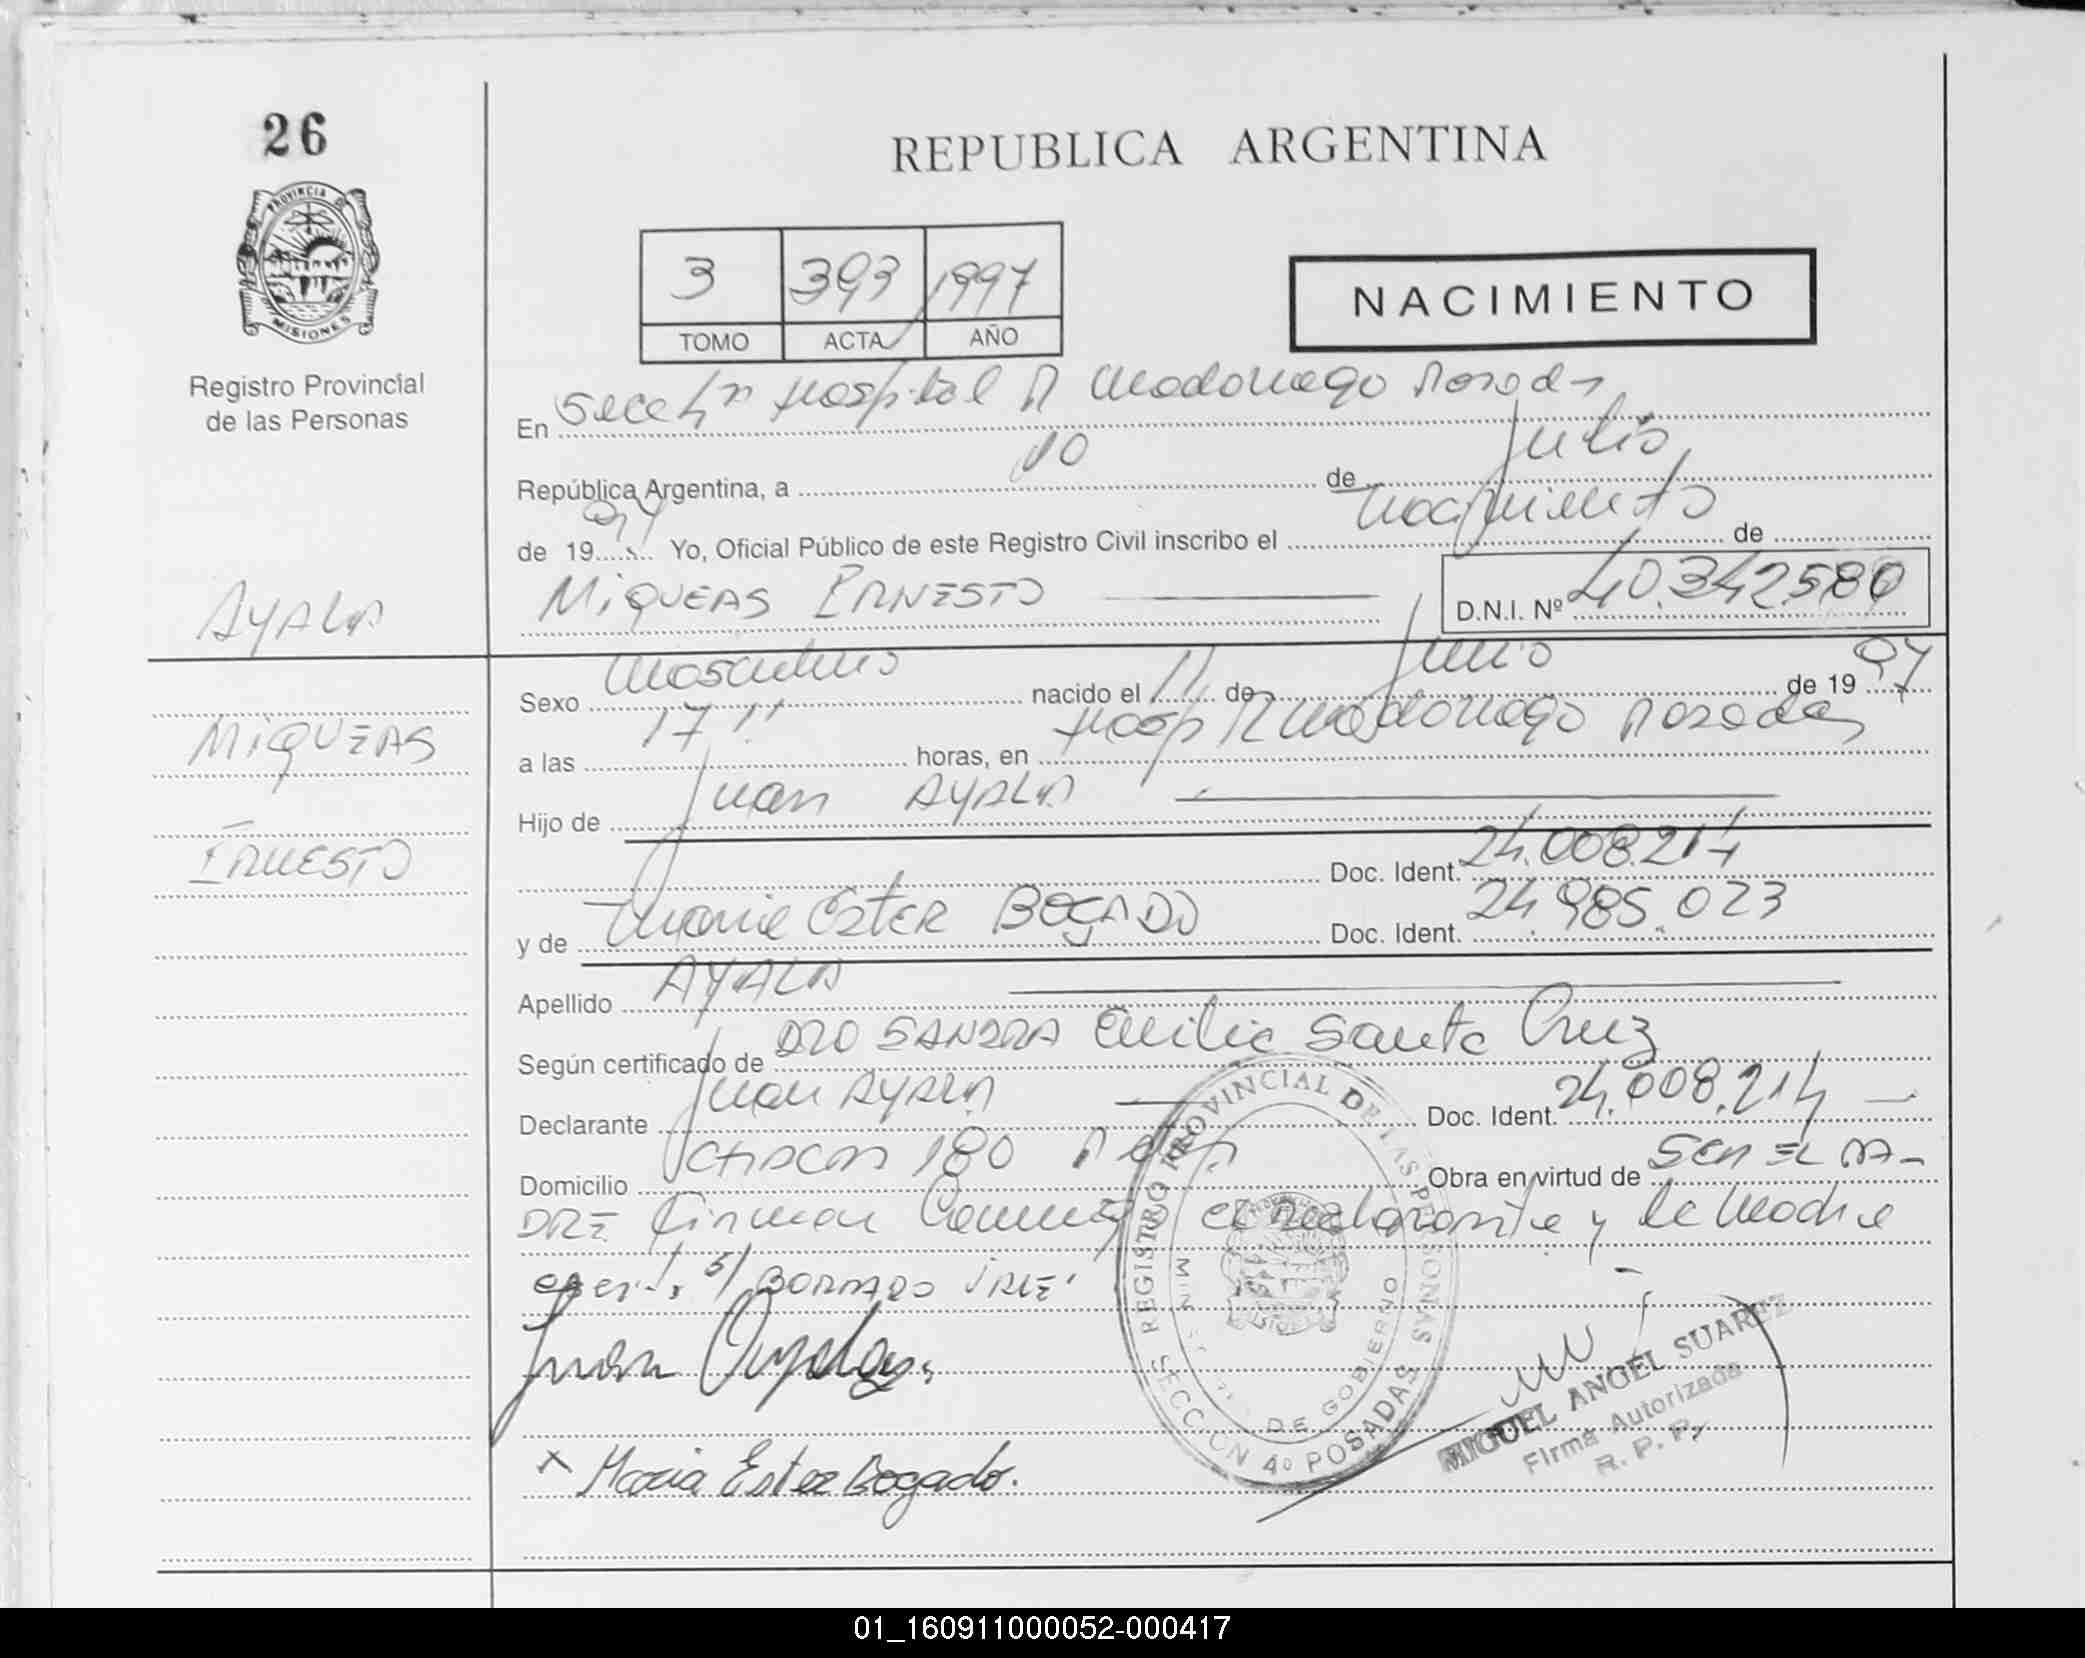 26
PROVINCIA DE
MISIONES
Registro Provincial
de las Personas
AYALA
MiQUEAS
ERNESTO
REPUBLICA ARGENTINA
3 393 1997
TOMO ACTA AÑO
NACIMIENTO
En Secc 4ta Hospital R Madariaga Posadas
República Argentina, a 10 de Julio
de 1997 Yo, Oficial Público de este Registro Civil inscribo el nacimiento de
MiQUEAS ERNESTO D.N.I. Nº 40.342580
Sexo Masculino nacido el 11 de Junio de 1997
a las 17 horas, en Hosp R Madariaga Posadas
Hijo de Juan AYALA
Doc. Ident. 24.008.214
y de Maria Ester BOGADO Doc. Ident. 24.985.023
Apellido AYALA
Según certificado de DRA SANDRA Emilia Santa Cruz
Declarante Juan AYALA Doc. Ident. 24.008.214
Domicilio 180 Obra en virtud de SER EL PA-
DRE Firman el declarante y la Madre
s/ BORRADO
Juan Ayala
x Maria Ester Bogado.
REGISTRO PROVINCIAL DE LAS PERSONAS
SECCION 4º POSADAS
DE GOBIERNO
MIGUEL ANGEL SUAREZ
Firma Autorizada
R. P. P.
01_160911000052-000417